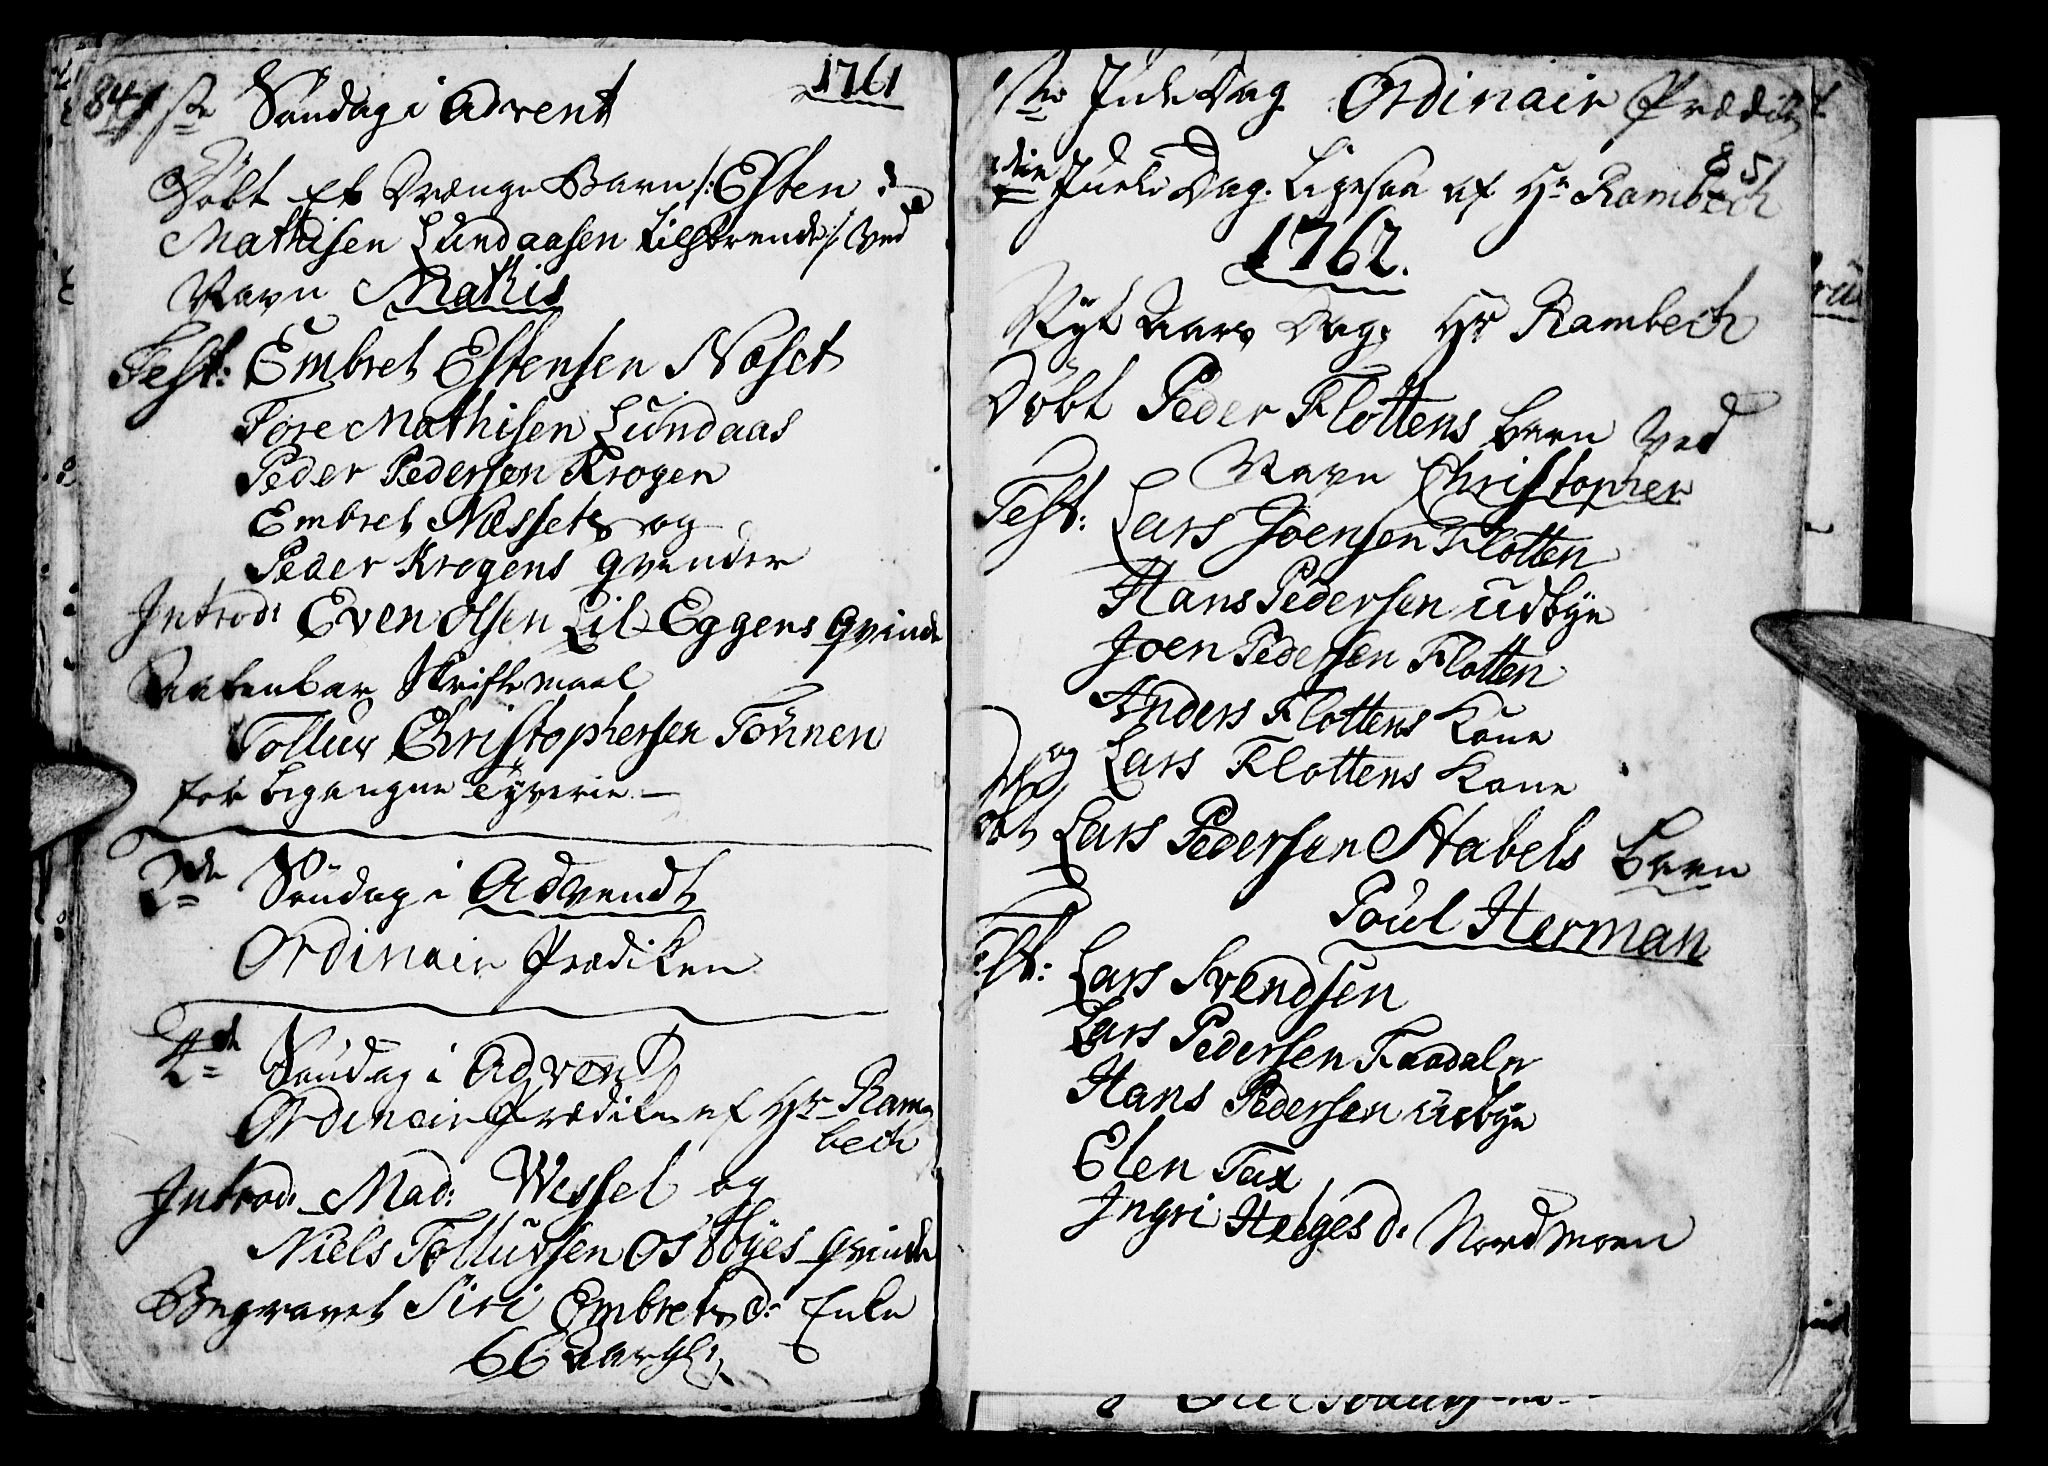 84 1ste Søndag i Advent 1761
Döbt Et Drænge Barn /: Esten
Mathisen Lundaasen tilhörende :/ Ved
Navn Mathis
Test: Embret Estensen Næset
Tore Mathisen Lundaas
Peder Pedersen Krogen
Embret Næssets og
Peder Krogens qvinder
Introd: Even Olsen Lil-Eggens qvinde
Aabenbar Skriftemaal
Tollur Christophersen Tönnen
for begangne Tyverie.
2de Søndag i Advendt
Ordinair Prædiken
Søndag i Advent
Ordinair Prædiken af Hr Ram-
bech
Introd: Mad: Wessel og
Niels Tollursen Osböyes qvinde
Begravet Siri Embrets d: Enke
66 aar gl:
1ste Jule Dag Ordinair Prædik
85
den Jule Dag. Ligesaa af Hr Rambech
1762.
Nyt Aars Dag. Hr Rambech
Döbt Peder Flottens barn ved
Navn Christopher
Test: Lars Joensen Flotten
Hans Pedersen Udbye
Joen Pedersen Flotten
Anders Flottens Kone
og Lars Flottens Kone
Lars Pedersen Stabels barn
Poul Herman
Test: Lars Svendsen
Lars Pedersen Faadale
Hans Pedersen Udbye
Elen Fax
Ingri Helges d: Nordmoen